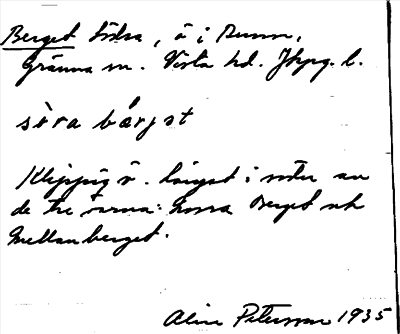 Berget Södra, ö i Bunn,
Gränna sn. Vista hd. Jkpg. l.
söra bärjat
Klippig ö. längst i söder av
de tre öarna: Norra Berget och
Mellanberget.
Aline Petersson 1935